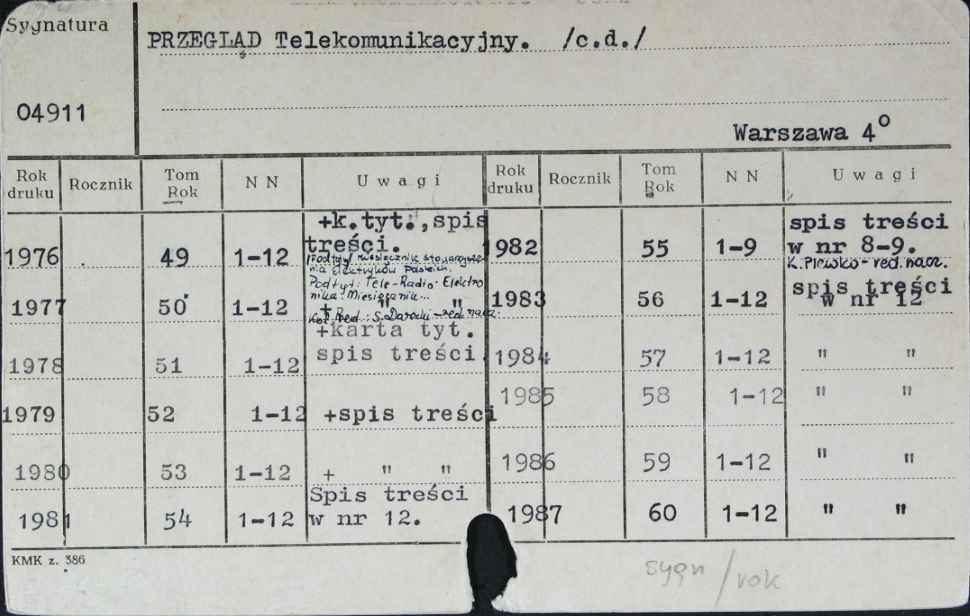 Sygnatura
PRZEGLĄD Telekomunikacyjny. /c.d./
04911
Warszawa 4°
Rok druku Rocznik Tom Rok N N Uwagi Rok druku Rocznik Tom Rok N N Uwagi
1976 49 1-12 +k.tyt.,spis treści.
Podtyt: Tele-Radio-Elektro
nika. Miesięcznik...
1977 50 1-12 + " "
Kol. Red.: S. Darecki - red. nacz.
1978 51 1-12 +karta tyt. spis treści.
1979 52 1-12 +spis treści
1980 53 1-12 + " "
1981 54 1-12 Spis treści w nr 12.
1982 55 1-9 spis treści w nr 8-9.
K. Plewko - red. nacz.
1983 56 1-12 spis treści w nr 12
1984 57 1-12 " "
1985 58 1-12 " "
1986 59 1-12 " "
1987 60 1-12 " "
KMK z. 386
sygn/rok